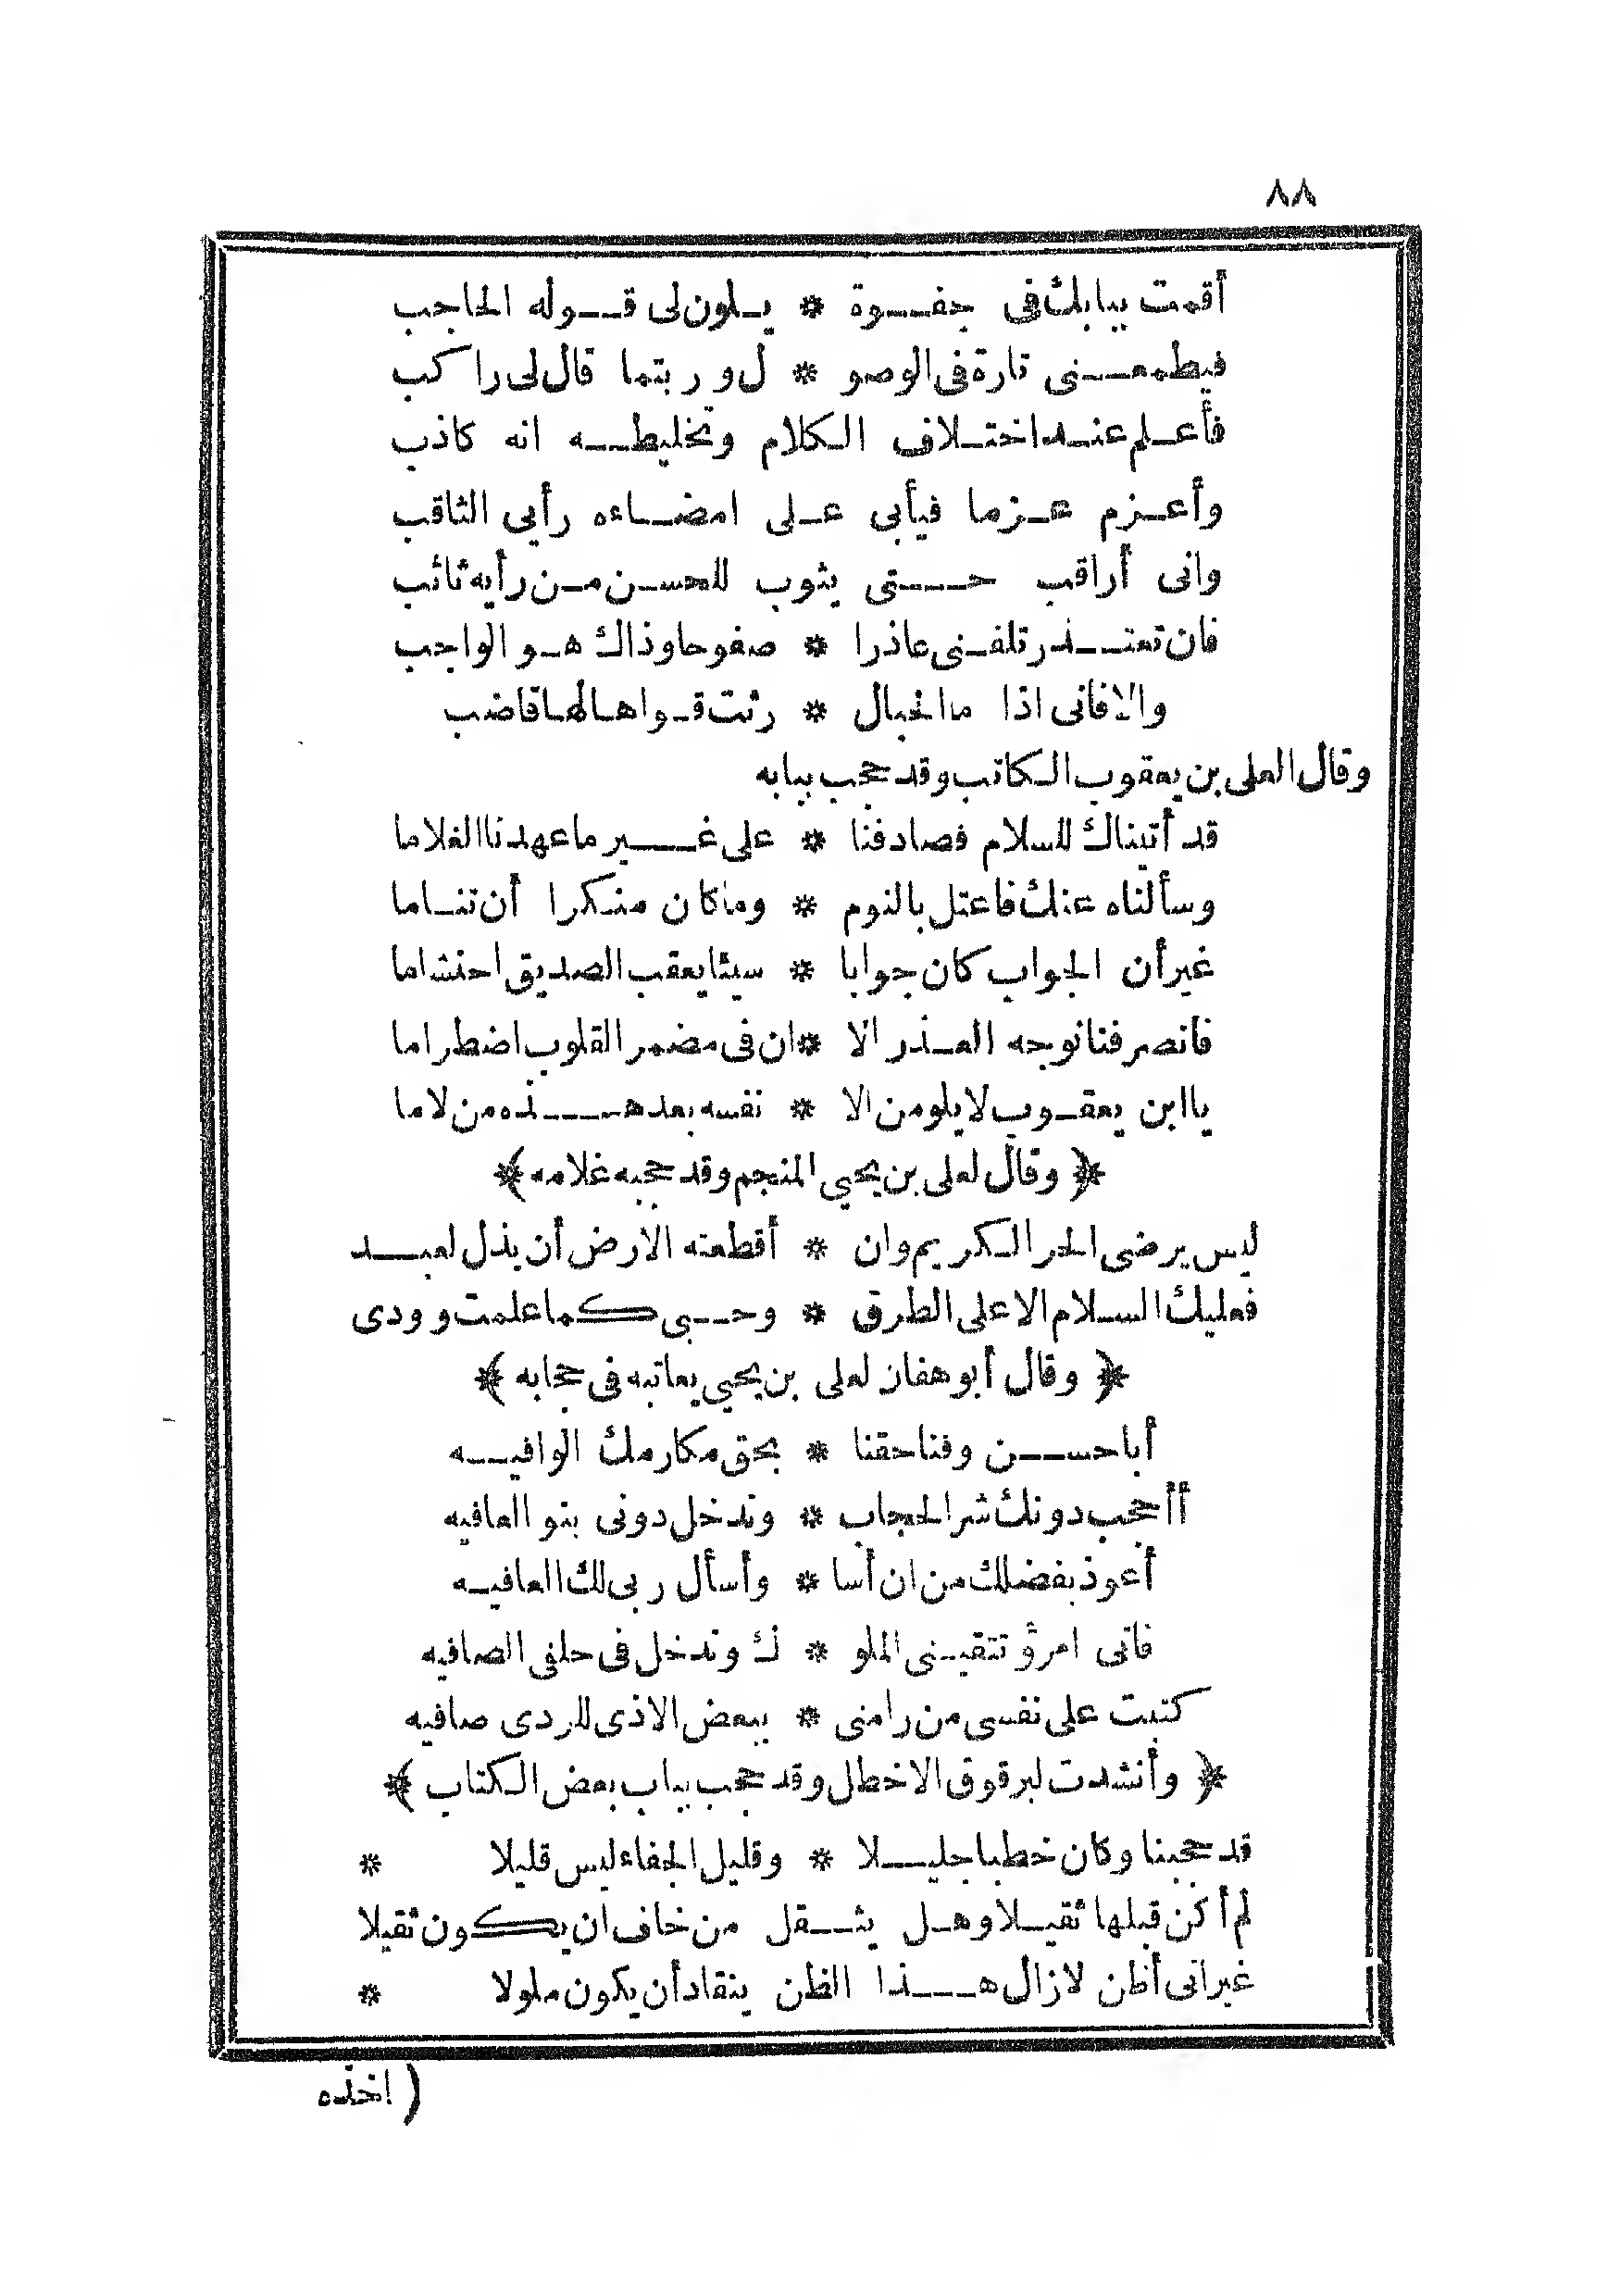 ٨٨
أقمت ببابك فى جفوة * يلون لى قوله الحاجب
فيطمعنى تارة فى الوصو * ل و ربتما قال لى راكب
فأعلم عند اختلاف الكلام وتخليطه انه كاذب
وأعزم عزما فيأبى على امضاءه رأيى الثاقب
وانى أراقب حتى يثوب للحسن من رأيه ثائب
فان تعتذر تلفنى عاذرا * صفوحا وذاك هو الواجب
والا فانى اذا ما الحبال * رثت قواها لها قاضب
وقال العلى بن يعقوب الكاتب وقد حجب ببابه
قد أتيناك للسلام فصادفنا * على غير ما عهدنا الغلاما
وسألناه عنك فاعتل بالنوم * وما كان منكرا أن تناما
غير أن الجواب كان جوابا * سيئا يعقب الصديق احتشاما
فانصرفنا نوجه العذر الا * ان فى مضمر القلوب اضطراما
يا ابن يعقوب لا يلومن الا * نفسه بعد هذه من لاما
﴿ وقال لعلى بن يحيى المنجم وقد حجبه غلامه ﴾
ليس يرضى الحر الكريم وان * أقطعته الارض أن يذل لعبد
فعليك السلام الا على الطرق * وحبى كما علمت وودى
﴿ وقال أبو هفان لعلى بن يحيى يعاتبه فى حجابه ﴾
أبا حسن وفنا حقنا * بحق مكارمك الوافيه
أأحجب دونك شر الحجاب * وتدخل دونى بنو العافيه
أعوذ بفضلك من ان أسا * وأسأل ربى لك العافيه
فانى امرؤ تتقينى الملو * ك وتدخل فى حلفى الصافيه
كتبت على نفسى من رامنى * ببعض الاذى للردى صافيه
﴿ وأنشدت لبرقوق الاخطل وقد حجب بباب بعض الكتاب ﴾
قد حجبنا وكان خطبا جليلا * وقليل الجفاء ليس قليلا *
لم أكن قبلها ثقيلا وهل يثقل من خاف ان يكون ثقيلا
غير انى أظن لا زال هذا الظن ينقاد أن يكون ملولا *
( اخذه